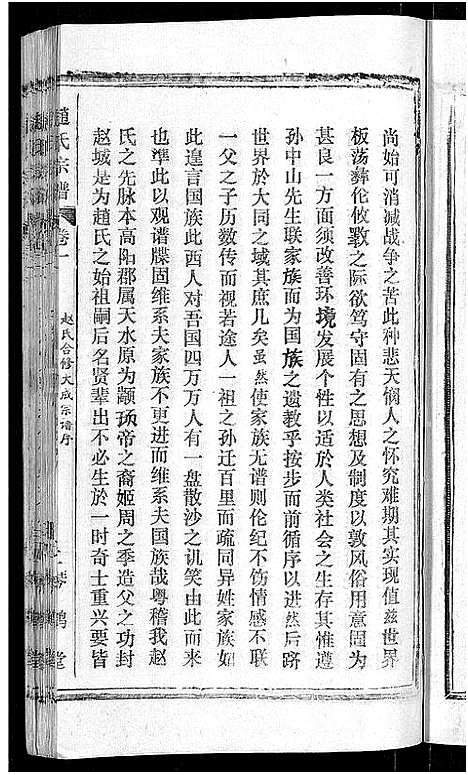 尚始可消减战争之苦此种悲天悯人之怀究难期其实现值兹世界
板荡彝伦攸斁之际欲笃守固有之思想及制度以敦风俗用意固为
甚良一方面须改善环境发展个性以适於人类社会之生存其惟遵
孙中山先生联家族而为国族之遗教乎按步而前循序以进然后跻
世界於大同之域其庶几矣虽然使家族无谱则伦纪不饬情感不联
一父之子历数传而视若途人一祖之孙迁百里而疏同异姓家族如
此遑言国族此西人对吾国四万万人有一盘散沙之讥笑由此而来
也準此以观谱牒固维系夫家族不更进而维系夫国族哉粤稽我赵
氏之先脉本高阳郡属天水原为颛顼帝之裔姬周之季造父之功封
赵城是为趙氏之始祖嗣后名贤辈出不必生於一时奇士重兴要皆
趙氏宗谱
卷一
赵氏合修大成宗谱序
琴鹤堂